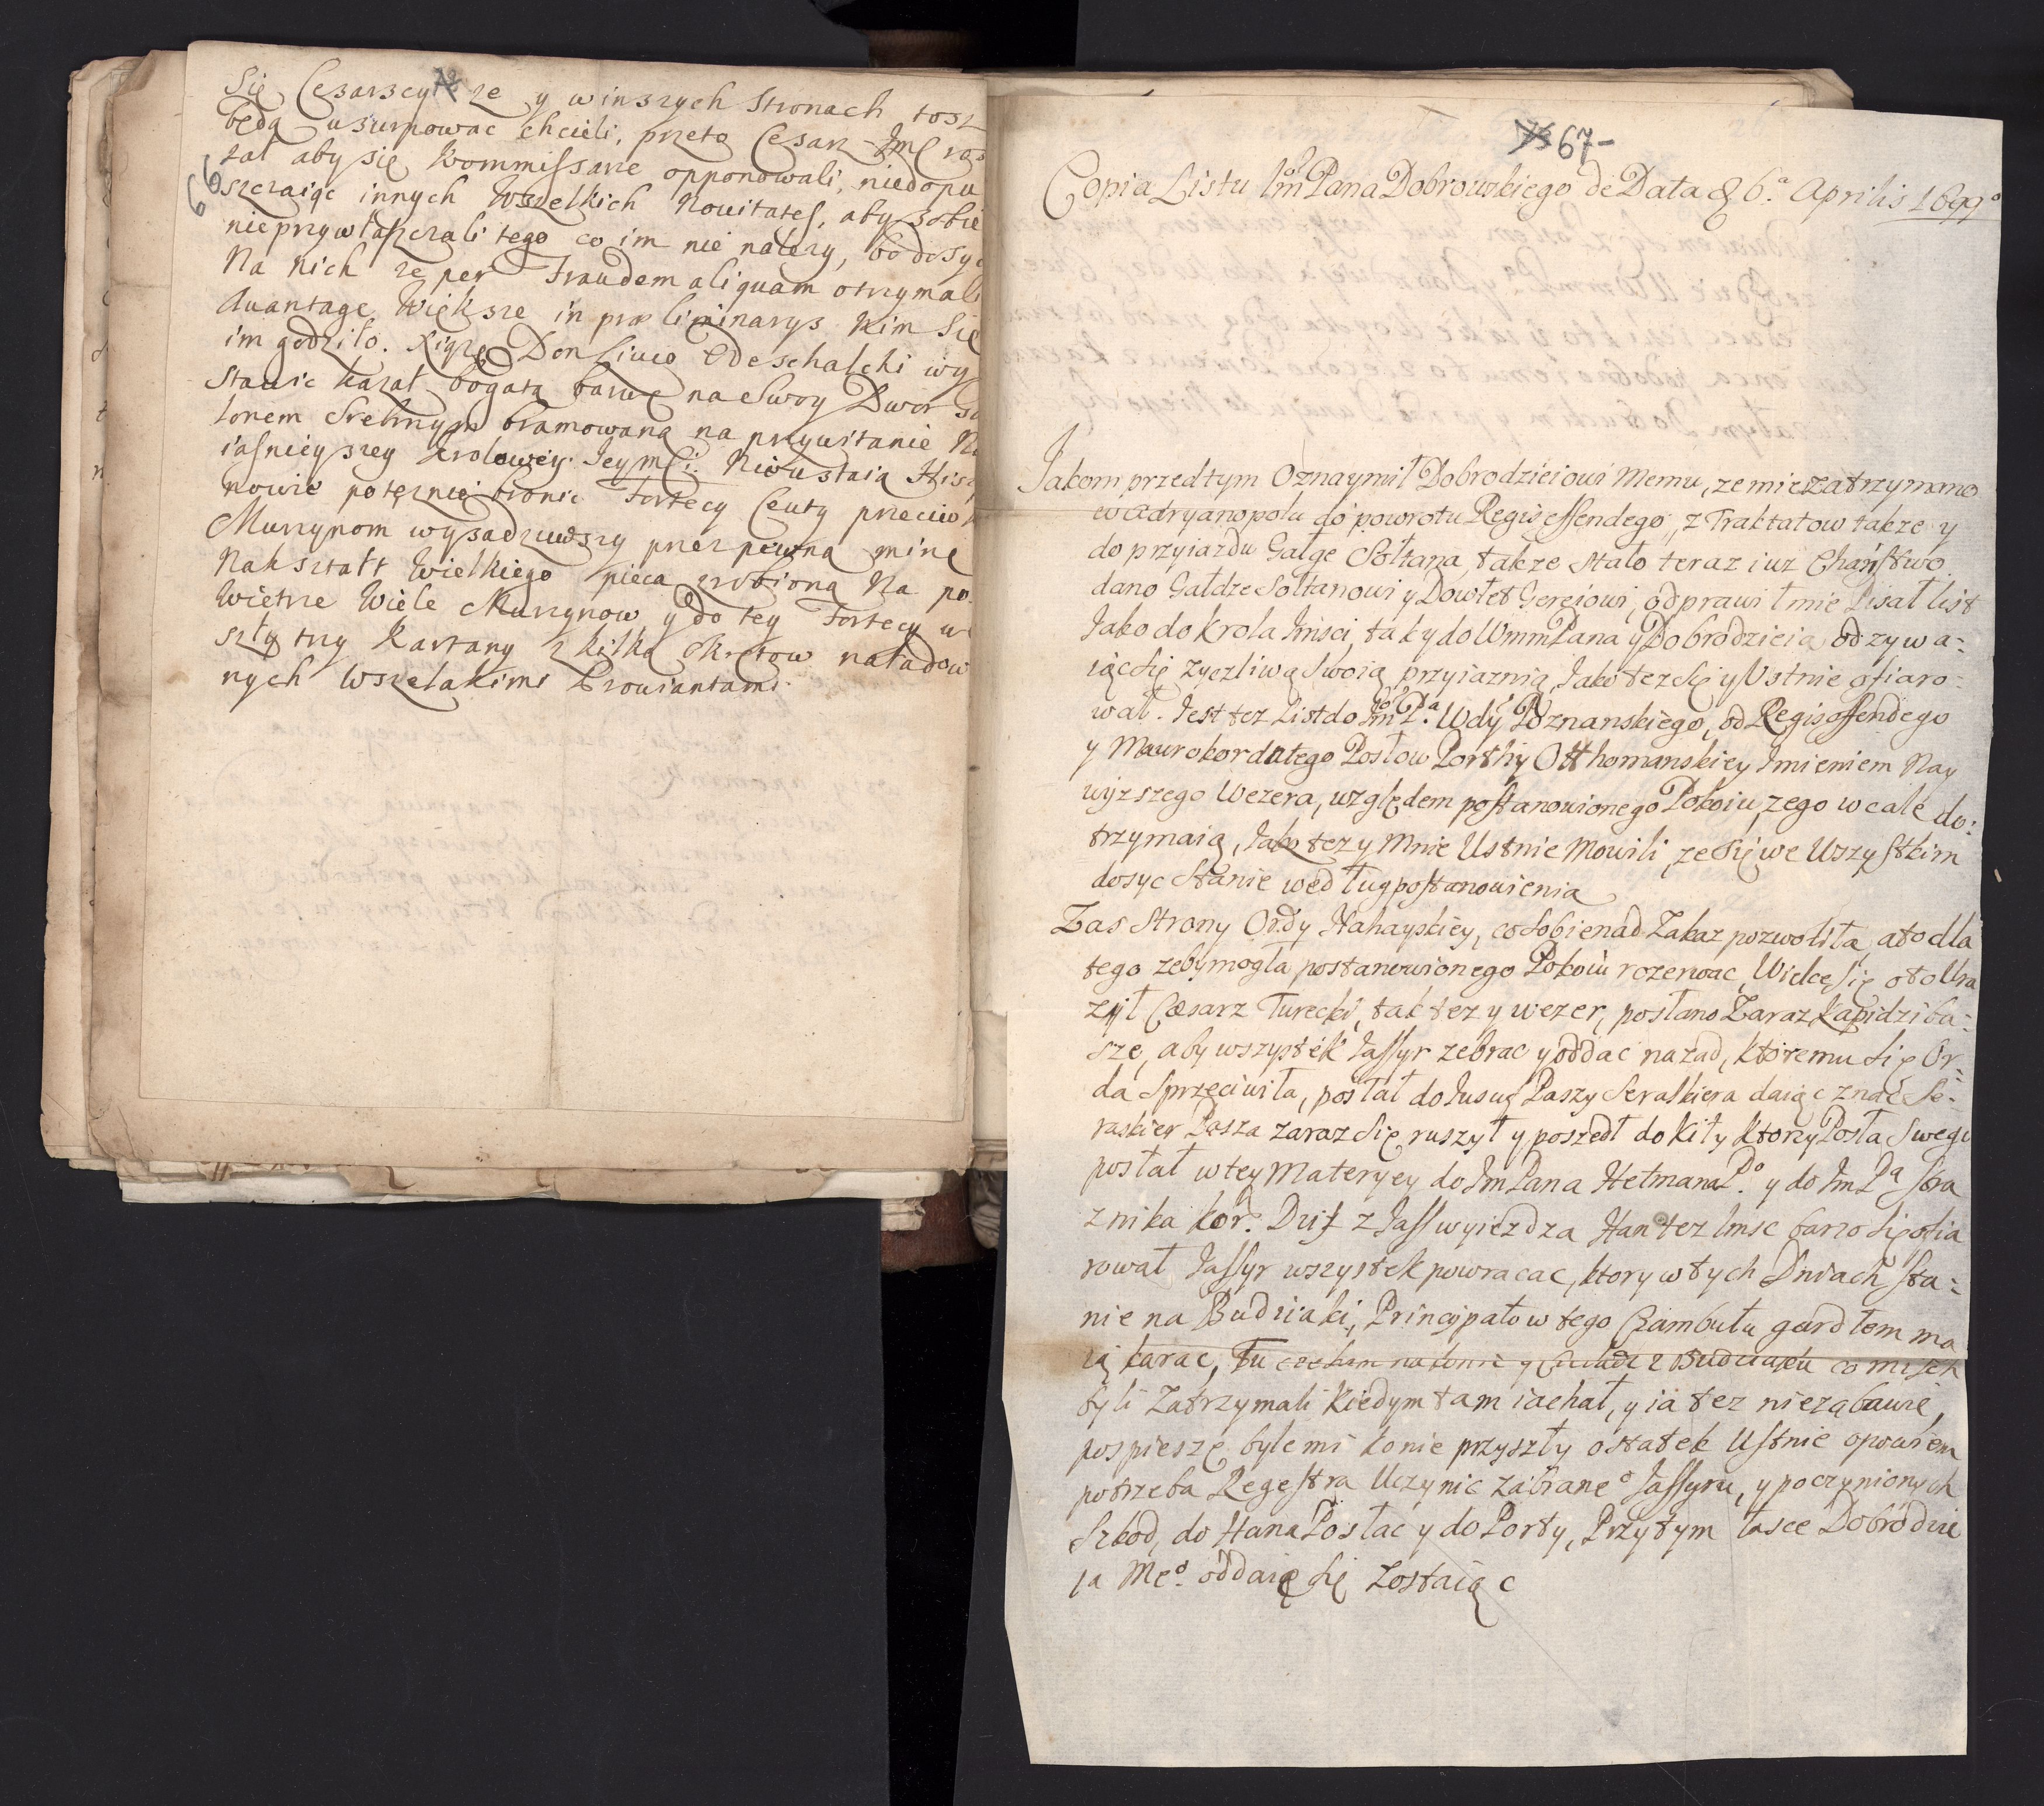 66
Się Cesarscy ze y winszych Stronach tosz
będą usurpowac chcieli, przeto Cesarz JMC roz
zał aby się Kommissarze opponowali, niedopu
szczaiąc innych Wszelkich Novitates, aby sobie
nieprzywłaszczali tego co im nie nalezy, bo dosyc
Na nich ze per Fraudem aliquam otrzymali
Avantage Większe in præliminarys nim Się
im godziło. Xiąze Don Livio Odeschalchi wy
Stawic kazał bogatą barwę na Swoy Dwor
lonem Srebrnym bramowaną na przywitanie Na
iasnieyszey Krolowey Jeymci. Nieustaią Hisz
nowie potęznie bronic Fortecy Ceuty przeciwk
Murzynom wysadziwszy przez pewną minę
Nakształt Wielkiego pieca zrobioną Na po
Wietrze Wiele Murzynow y do tey Fortecy w
szły trzy Kartany z kilką Okrętow naładow
nych Wszelakimi Prowiantami.
67-
Copia Listu Jmº Pana Dobrowskiego de Data 6.ª Aprilis 1699º
Jakom przedtym Oznaymił Dobrodzieiowi Memu, ze mie zatrzymano
w Adryanopolu do powrotu Regis effendego, z Traktatow takze y
do przyiazdu Gałge Sołtana, takze stało teraz iuz Chaństwo
dano Gałdze Sołtanowi y Dowlet Gereiowi, odprawił mie Pisał list
Jako do Krola Jmsci, tak y do Wmm Pana y Dobrodzieia odzywa:
iąc się zyczliwą Swoią przyiaznią, Jako tez się y Ustnie ofiaro:
wał. Jest tez List do Jmº P.ª Wdy Poznanskiego, od Regis effendego
y Maurokordatego Posłow Porthy Otthomanskiey Jmieniem Nay
wyzszego Wezera, względem postanowionego Pokoiu, zego wcale do:
trzymaią, Jako tez y Mnie Ustnie Mowili ze się we Wszystkim
dosyc Stanie według postanowienia
Zas Strony Ordy Nahayskiey, co Sobie nad Zakaz pozwoliła, a to dla
tego zeby mogła postanowionego Pokoiu rozerwac, Wielce Się o to Ura
ził Cæsarz Turecki, tak tez y wezer, posłano Zaraz Kapidzi ba:
szę, aby wszystek Jassyr zebrac y oddac nazad, ktoremu się Or:
da Sprzeciwiła, posłał do Jusuf Paszy Seraskiera daiąc znac Se:
raskier Pasza zaraz się ruszył y poszedł do Kily ktory Posła Swego
posłał w tey Materyey do Jm Pana Hetmana P.º y do Jm Pª stra
znika Kor. Dziś z Jass wyiezdza Han tez Jmsc barzo się ofia
rował Jassyr wszystek powracac, ktory w tych Dniach sta:
nie na Budziaki, Principałow tego Czambułu gardłem ma
ią karac, Tu czekam na konie y Czeladz z Budziaku co mi ich
byli Zatrzymali kiedym tam iachał, y ia tez niezabawie,
pospieszę byle mi konie przyszły ostatek Ustnie opowiem
potrzeba Regestra Uczynic zabraneº Jassyru, y poczynionych
Szkod, do Hana Posłac y do Porty, Przytym łasce Dobrodzie
ia Meº. oddaię się zostaiąc